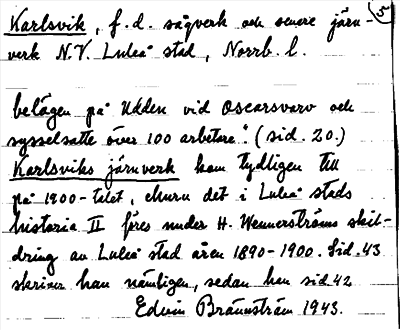 5
Karlsvik, f.d. sågverk och senare järn-
verk N.V. Luleå stad, Norrb. l.
belägen på udden vid Oscarsvarv och
sysselsatte över 100 arbetare." (sid. 20.)
Karlsviks järnverk kom tydligen till
på 1900-talet, churu det i Luleå stads
historia II föres under H. Wennerströms skil-
dring av Luleå stad åren 1890-1900. Sid. 43
skriver han nämligen, sedan han sid 42
Edvin Brännström 1943.